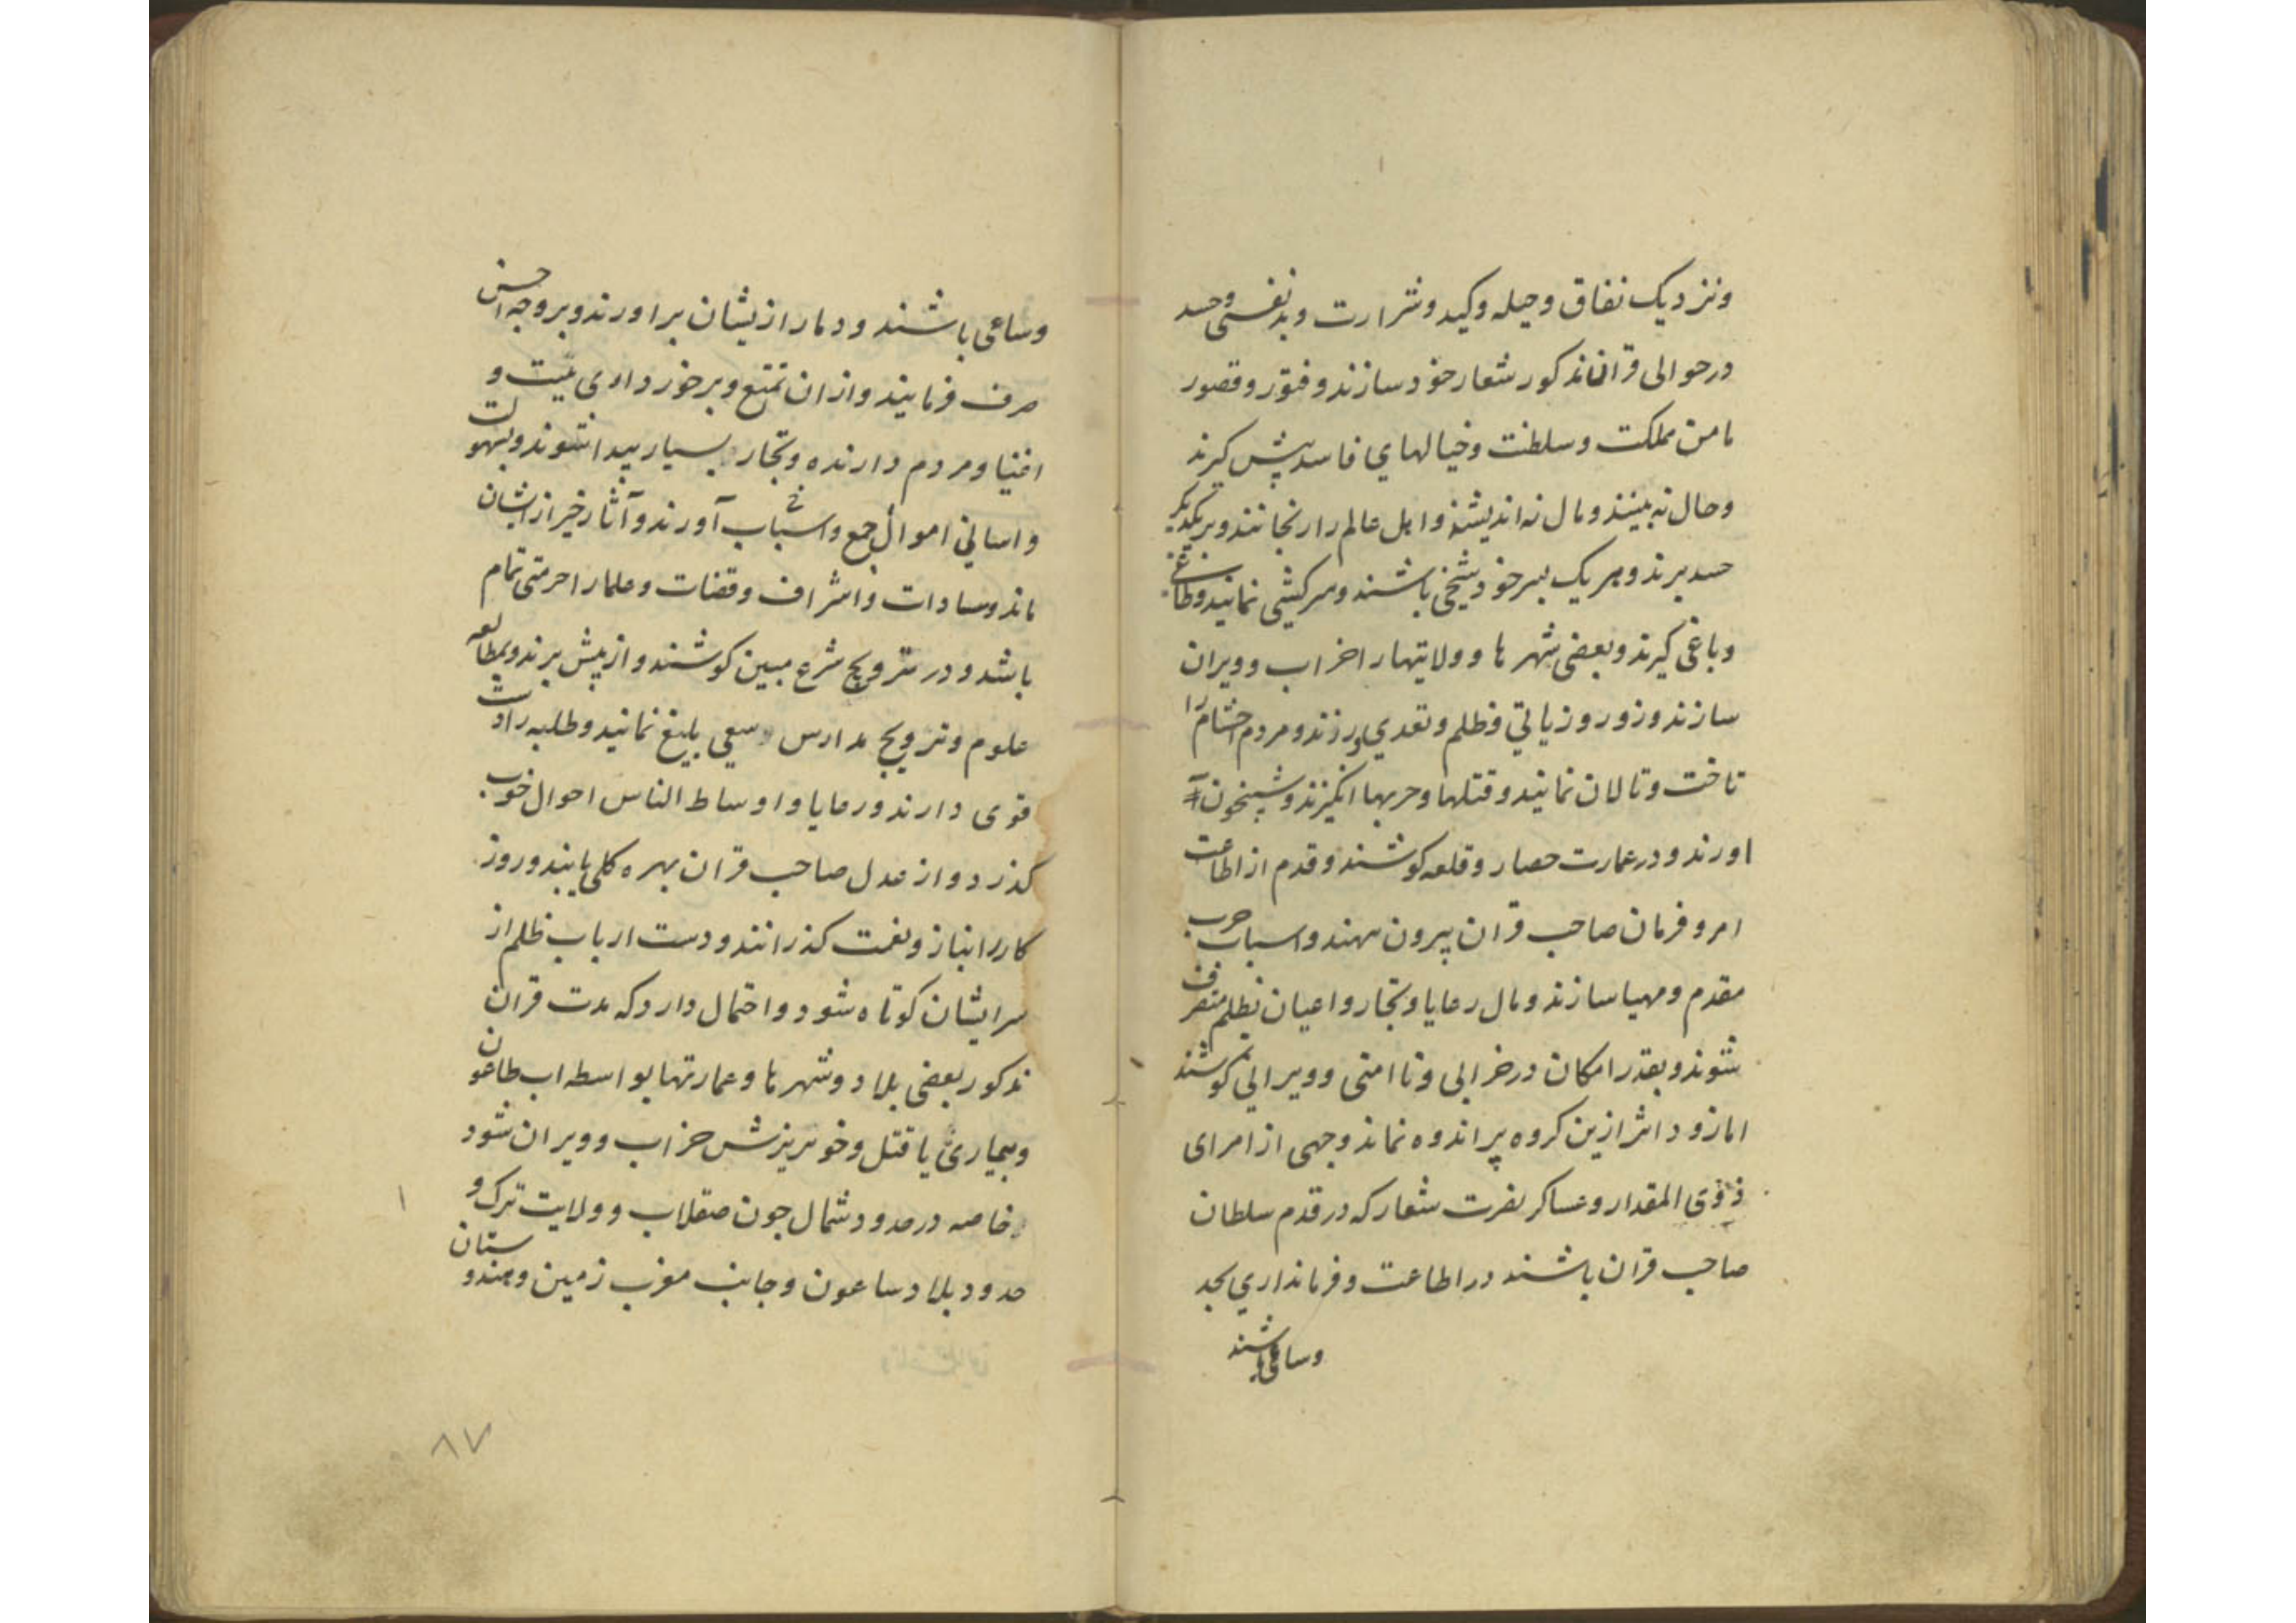 ونزدیک نفاق وحیله وکید وشرارت وبدنفسی وحسد
درحوالی قران مذکور شعار خود سازند وفتور وقصور
مامن مملکت وسلطنت وخیالهای فاسد پیش کیرند
وحال نه بینند ومال نه اندیشند واهل عالم را رنجانند وبریکدیکر
حسد برند وهریک بسر خود شیخی باشند وسرکشی نمایند وطاغی
وباغی کیرند وبعضی شهرها وولایتها را خراب وویران
سازند وزور وزیاتی وظلم وتعدي ورزند ومردم احشام را
تاخت وتالان نمایند وقتلها وحربها انکیزند وشبیخون
اورند ودرعمارت حصار وقلعه کوشند وقدم از اطاعت
امر وفرمان صاحب قران بیرون نهند واسباب حرب
مقدم ومهیا سازند ومال رعایا وتجار واعیان بظلم متصرف
شوند وبقدر امکان درخرابی ونا امنی وویرانی کوشند
اما زود اثر ازین کروه پراندوه نماند وجهی از امرای
ذوی المقدار وعساکر نصرت شعار که درقدم سلطان
صاحب قران باشند در اطاعت وفرمانداري بجد
وساعی باشند
وساعی باشند ودمار ازیشان براورند وبروجه احسن
صرف فرمایند وازان تمتع وبرخورداری
اغنیا ومردم دارنده وتجار بسیار پیدا شوند وبسهولت
واسانی اموال جمع واسباب آورند وآثار خیر ازایشان
ماند وسادات واشراف وقضات وعلمارا حرمتی تمام
باشد ودر ترویج شرع مبین کوشند وازپیش برند وبمطالعه
علوم وترویج مدارس وسعی بلیغ نمایند وطلبه را
قوی دارند ورعایا واوساط الناس احوال خوب
کذرد واز عدل صاحب قران بهره کلی یابند وروز
کاررا بناز ونعمت کذرانند ودست ارباب ظلم از
سر ایشان کوتاه شود واحتمال دارد که مدت قران
مذکور بعضی بلاد وشهرها وعمارتها بواسطه اب طاعون
وبیماری یا قتل وخونریزش خراب وویران شود
خاصه درحدود شمال جون صقلاب وولایت ترک و
حدود بلاد ساعون وجانب مغرب زمین وهندوستان
۸۷